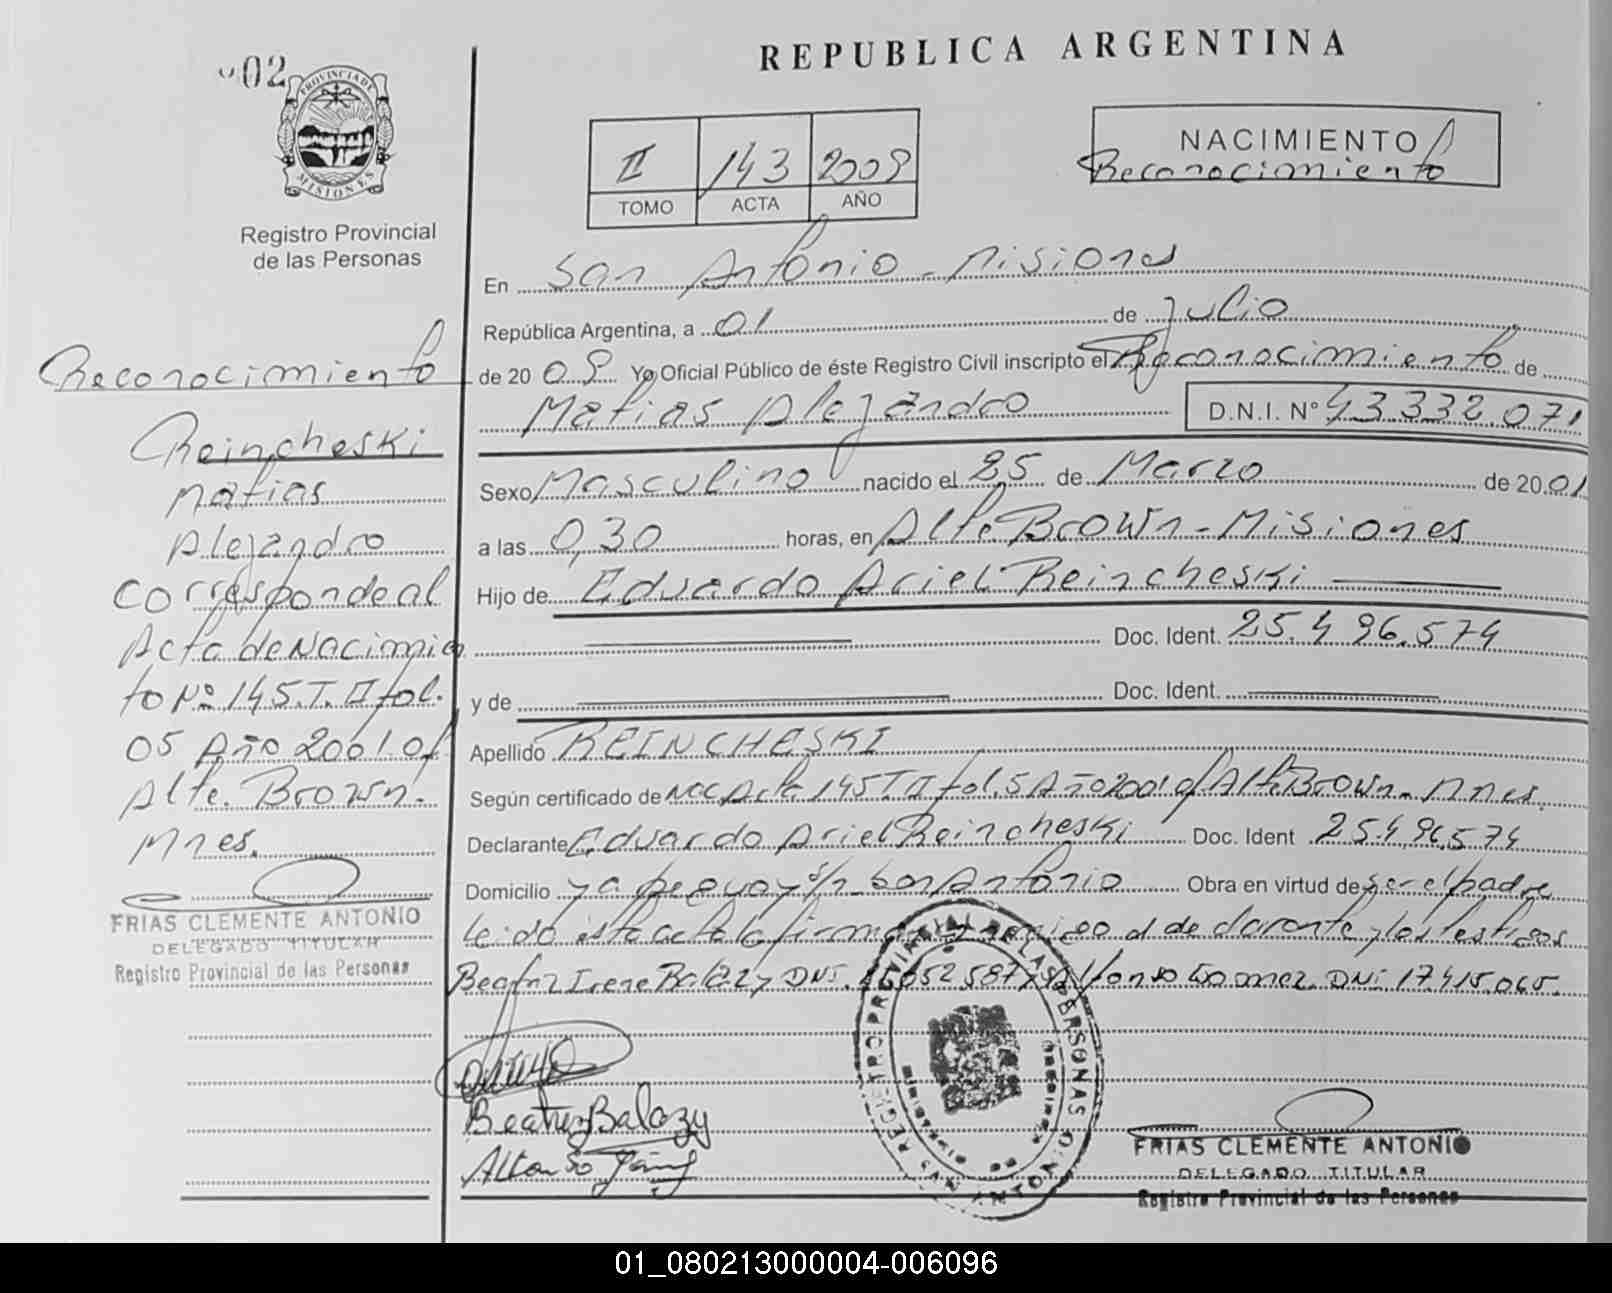 REPUBLICA ARGENTINA
02
PROVINCIA DE MISIONES
Registro Provincial
de las Personas
II 143 2009
TOMO ACTA AÑO
NACIMIENTO
Reconocimiento
En San Antonio - Misiones
República Argentina, a 01 de Julio
de 20 09 Yo Oficial Público de éste Registro Civil inscripto el Reconocimiento de
Matias Alejandro D.N.I. Nº 43.332.071
Sexo Masculino nacido el 25 de Marzo de 20 01
a las 0,30 horas, en Alte Brown - Misiones
Hijo de Eduardo Ariel Reincheski
Doc. Ident. 25.496.574
y de Doc. Ident.
Apellido REINCHESKI
Según certificado de Nac. Acta 145 T II fol. 5 Año 2001 of Alte Brown - Mnes.
Declarante Eduardo Ariel Reincheski Doc. Ident 25.496.574
Domicilio Yapeyu y s/n San Antonio Obra en virtud de ser el padre
leido esta acta la firman conmigo el declarante y los testigos
Beatriz Irene Balazy DNI. 16.052.587 y Alfonso Gomez DNI 17.415.065.
Beatriz Balazy
Alfonso
Reconocimiento
Reincheski
Matias
Alejandro
Corresponde al
Acta de Nacimien
to Nº 145.T. II fol.
05 Año 2001. of
Alte. Brown.
Mnes.
FRIAS CLEMENTE ANTONIO
DELEGADO TITULAR
Registro Provincial de las Personas
REGISTRO PROVINCIAL DE LAS PERSONAS
SAN ANTONIO
FRIAS CLEMENTE ANTONIO
DELEGADO TITULAR
Registro Provincial de las Personas
01_080213000004-006096